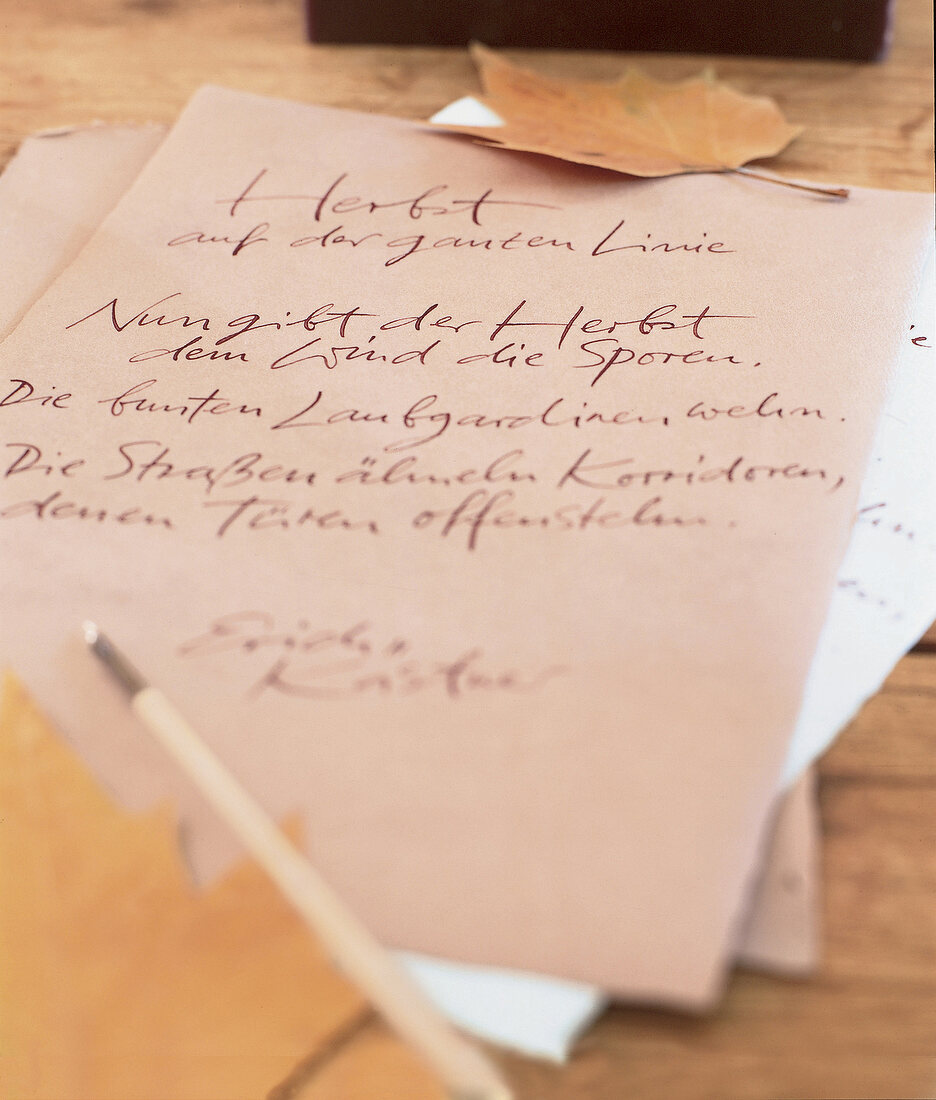 Herbst
auf der ganzen Linie
Nun gibt der Herbst
dem Wind die Sporen.
Die bunten Laubgardinen wehn.
Die Straßen ähneln Korridoren,
denen Türen offenstehn.
Erich
Kästner